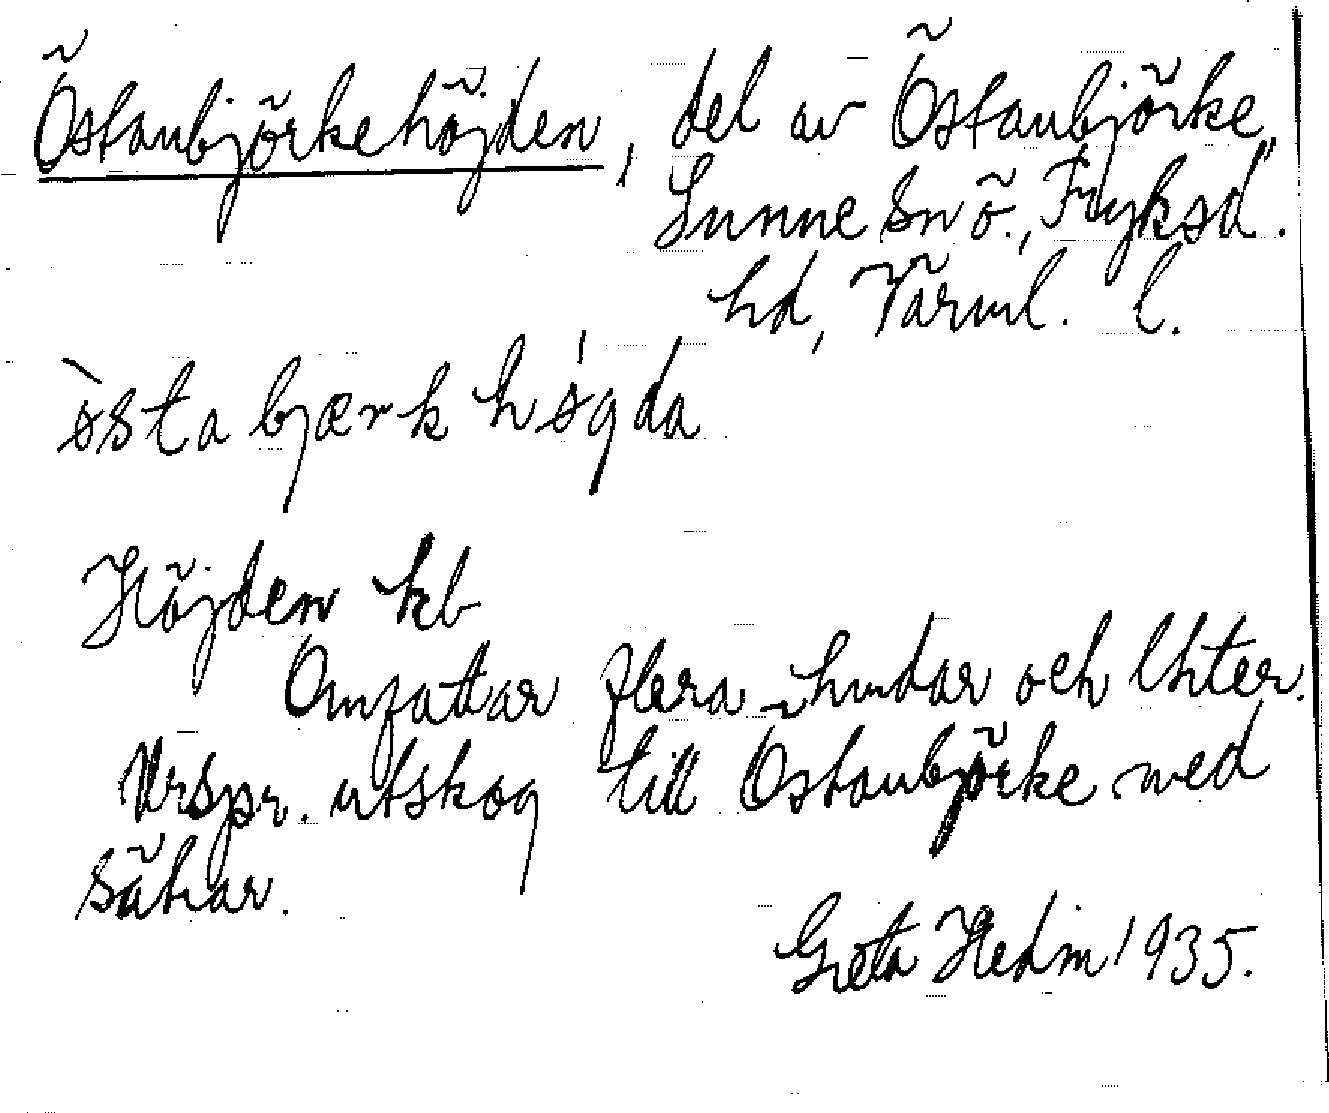 Östanbjörkehöjden, del av Östanbjörke,
Sunne sn ö., Fryksd.
hd, Värml. l.
östa bjærk høgda
Höjden kb
Omfattar flera and och
Urspr. utskog till Östanbjörke med
sätrar.
Greta Hedin 1935.